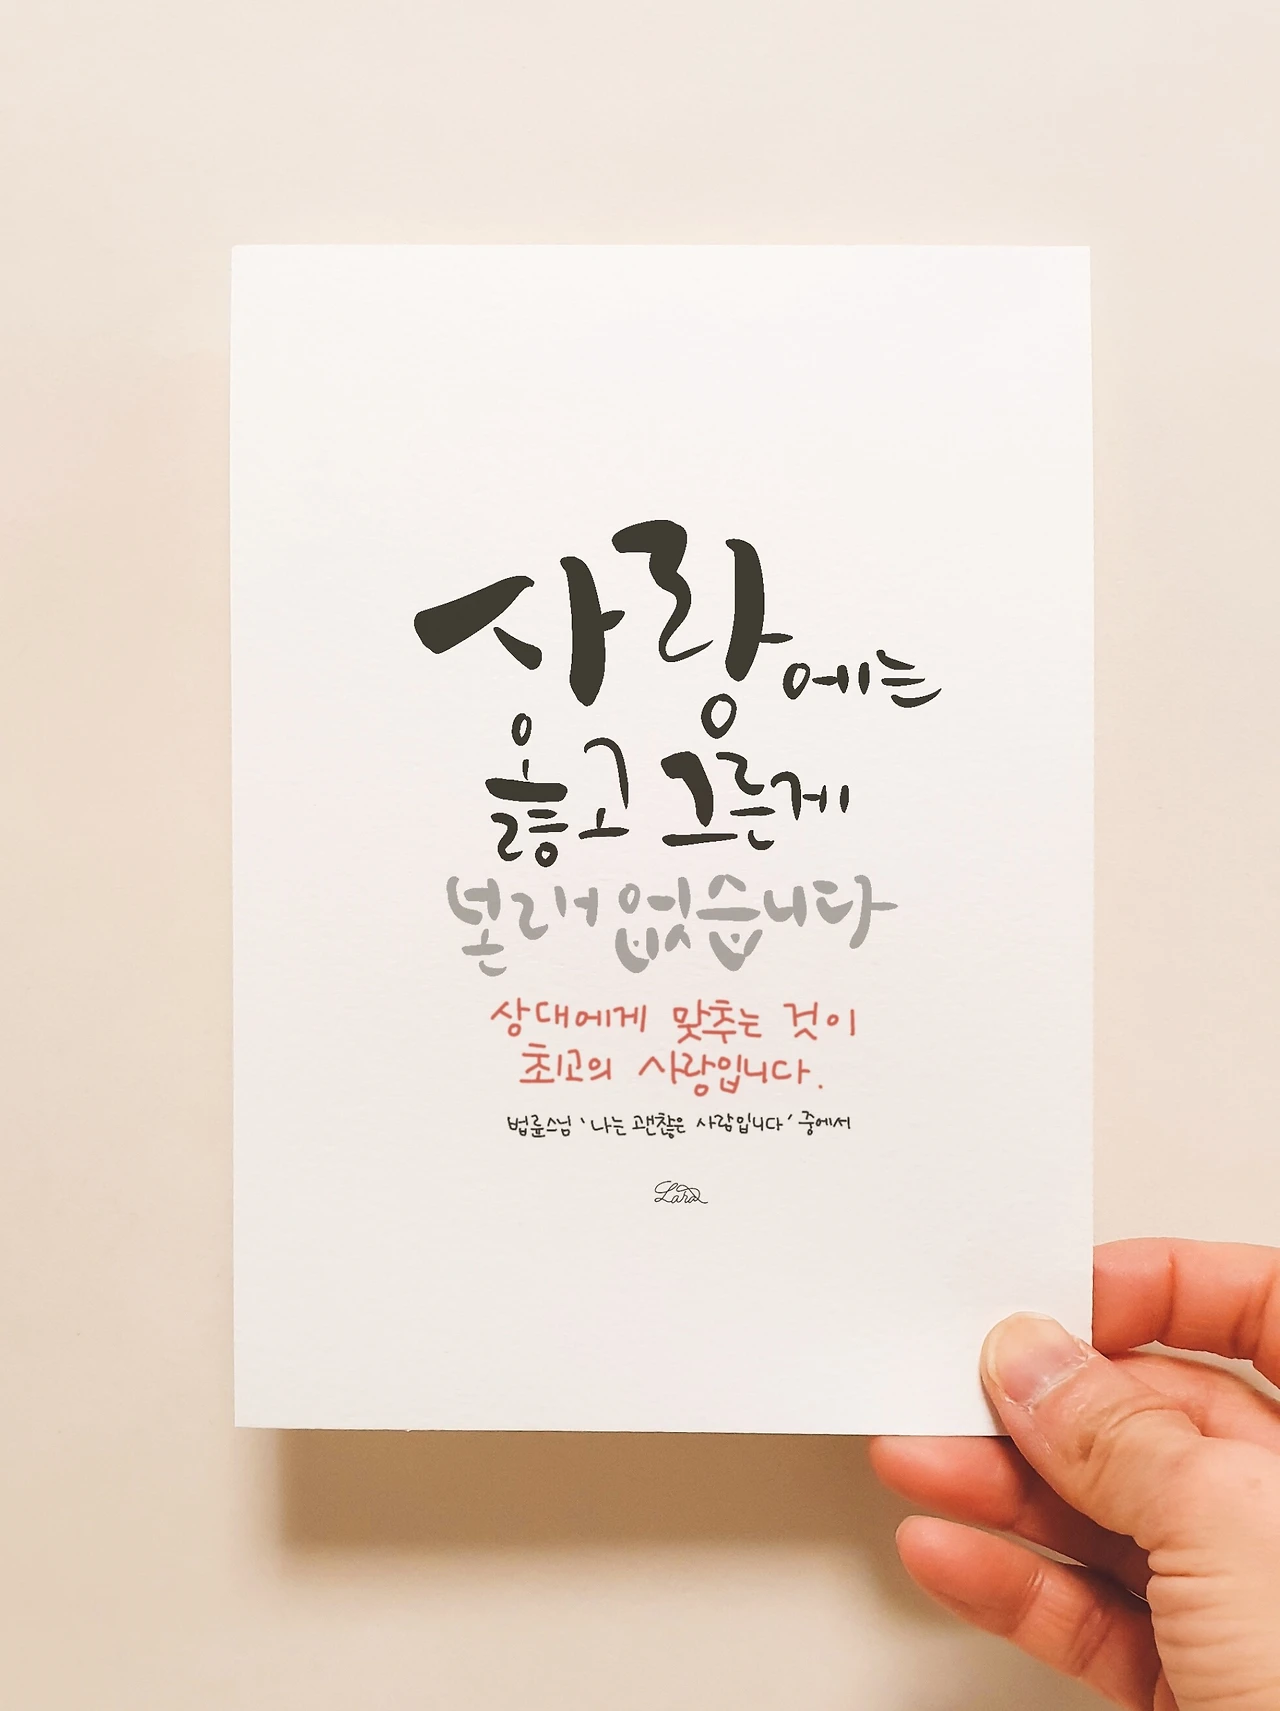 사랑에는
옳고 그른게
본래 없습니다
상대에게 맞추는 것이
최고의 사랑입니다.
법륜스님 '나는 괜찮은 사람입니다' 중에서
Lara